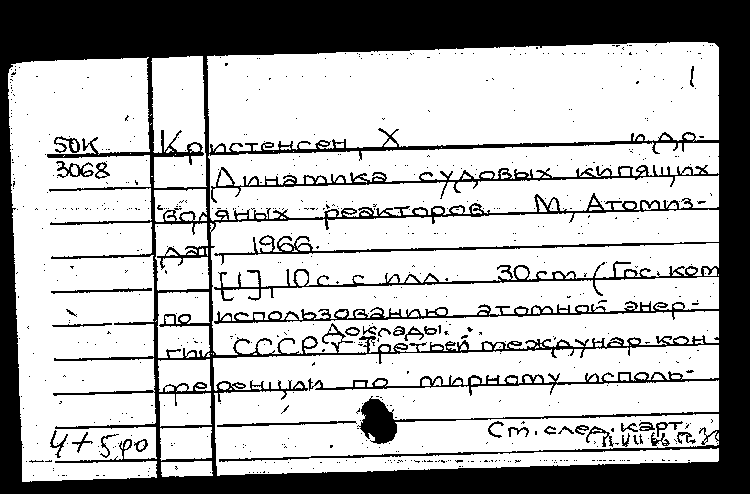 1
50К Кристенсен, Х и др.
3068 Динамика судовых кипящих
водяных реакторов. М., Атомиз-
дат, 1966.
[1], 10 с. с илл. 30 cm. (Гос. ком
по использованию атомной энер-
Доклады.
гии СССР. Третьей междунар. кон-
ференции по мирному исполь-
Ст. след. карт.
4+5